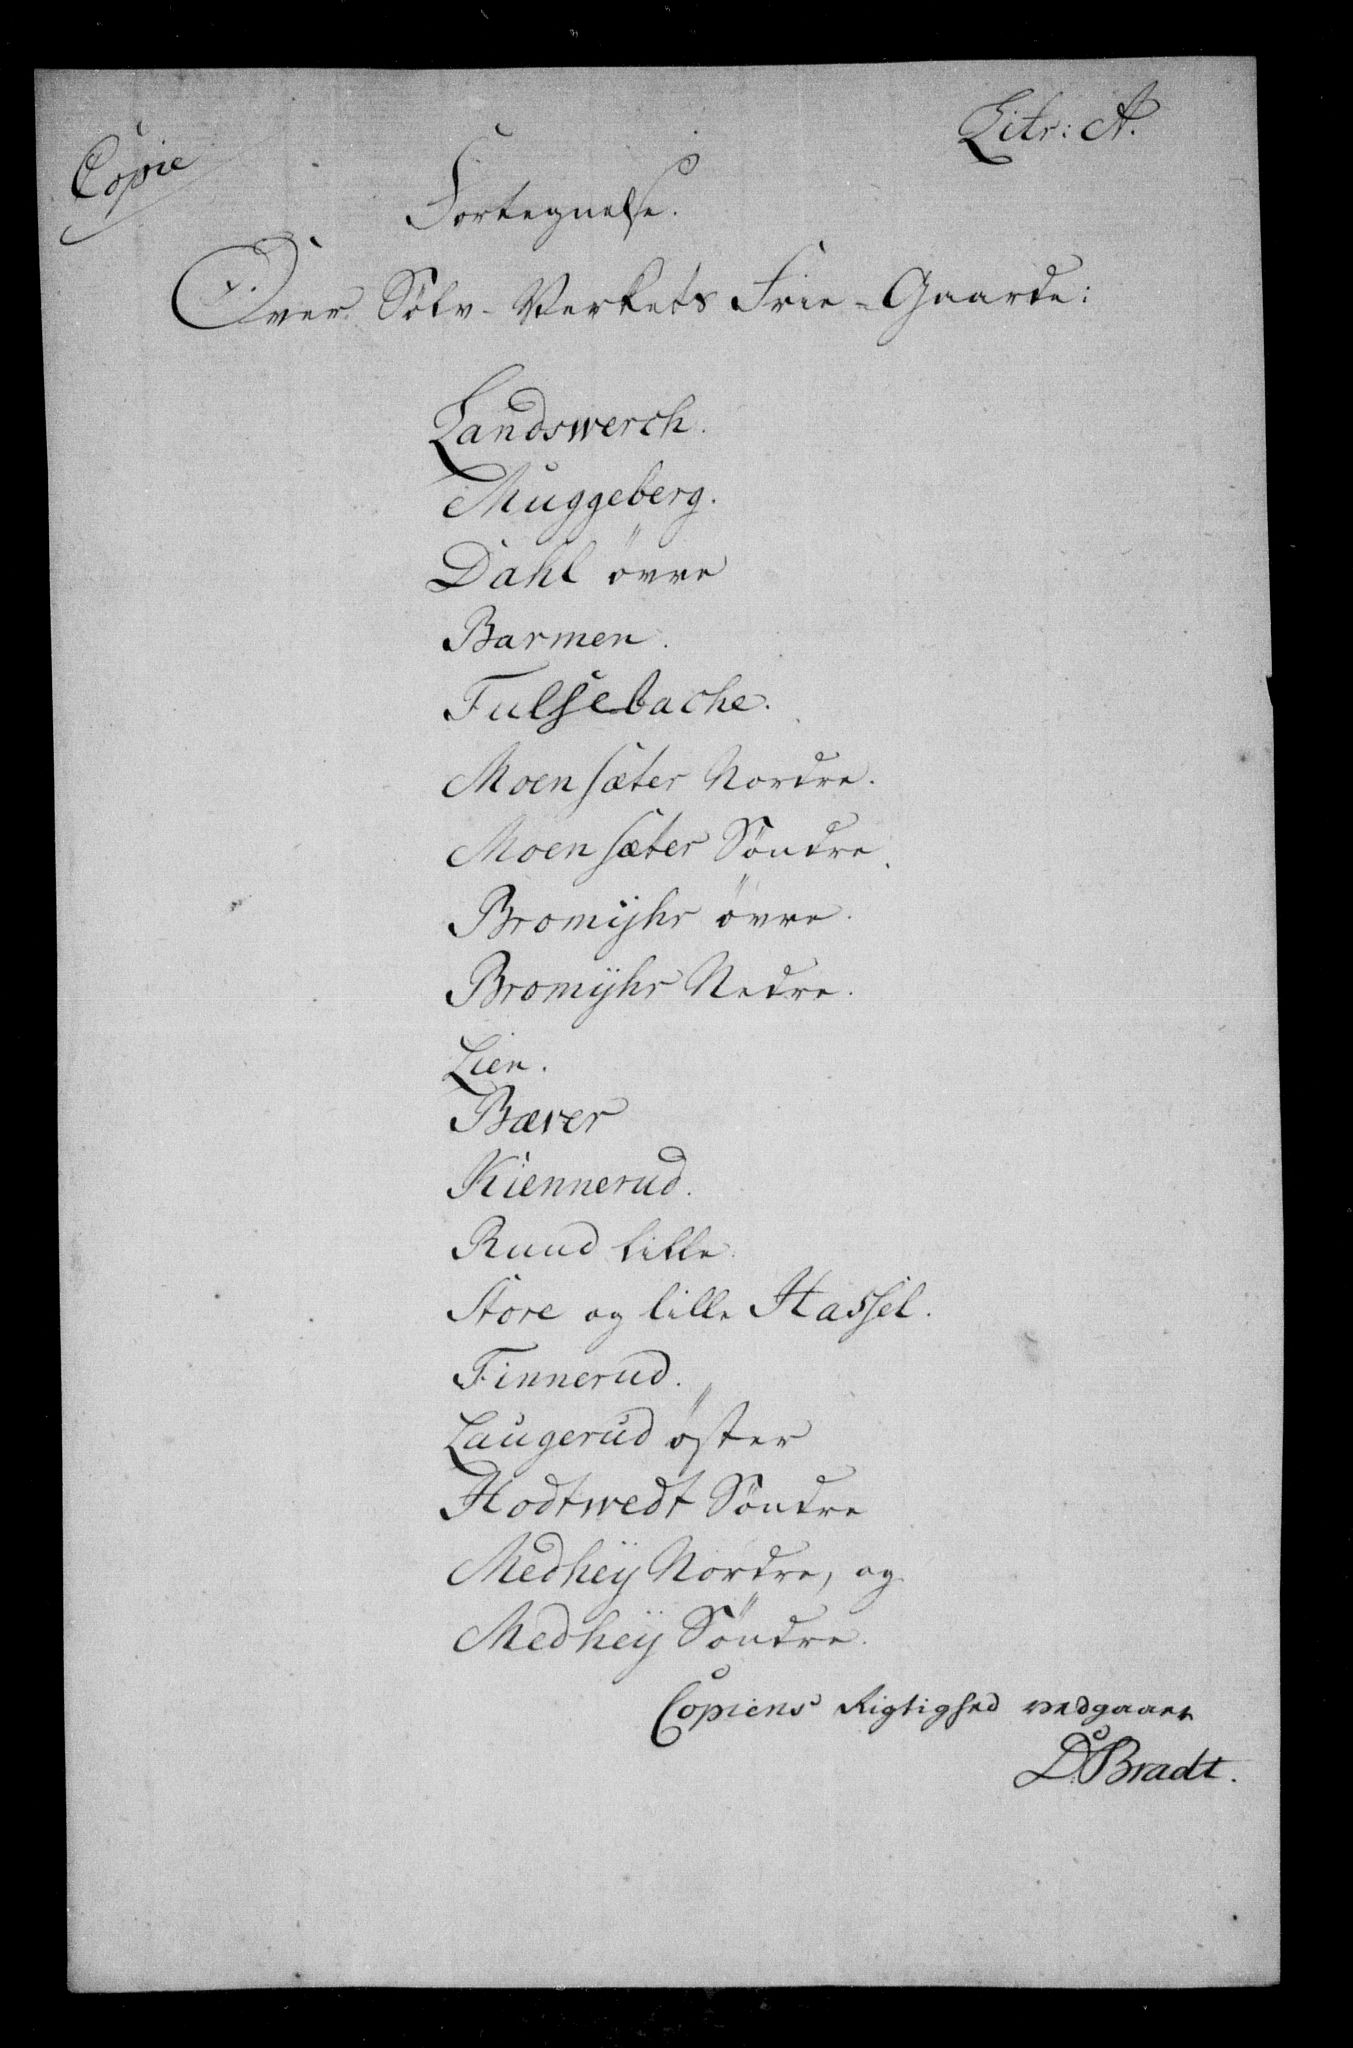 Litr: A.
Copie
Fortegnelse.
Over Sølv-Verkets Frie-Gaarde:
Landswerch.
Muggeberg.
Dahl övre
Barmen.
Fulsebache.
Moensæter Nordre.
Moensæter Söndre.
Bromÿhr övre.
Bromÿhr Nedre.
Lien.
Bæver
Kiennerud.
Ruud lille.
Store og lille Hassel.
Finnerud.
Laugerud öster
Hodtwedt Söndre
Medheÿ Nordre, og
Medheÿ Söndre.
Copiens Rigtighed vedgaaer
D. Bradt.